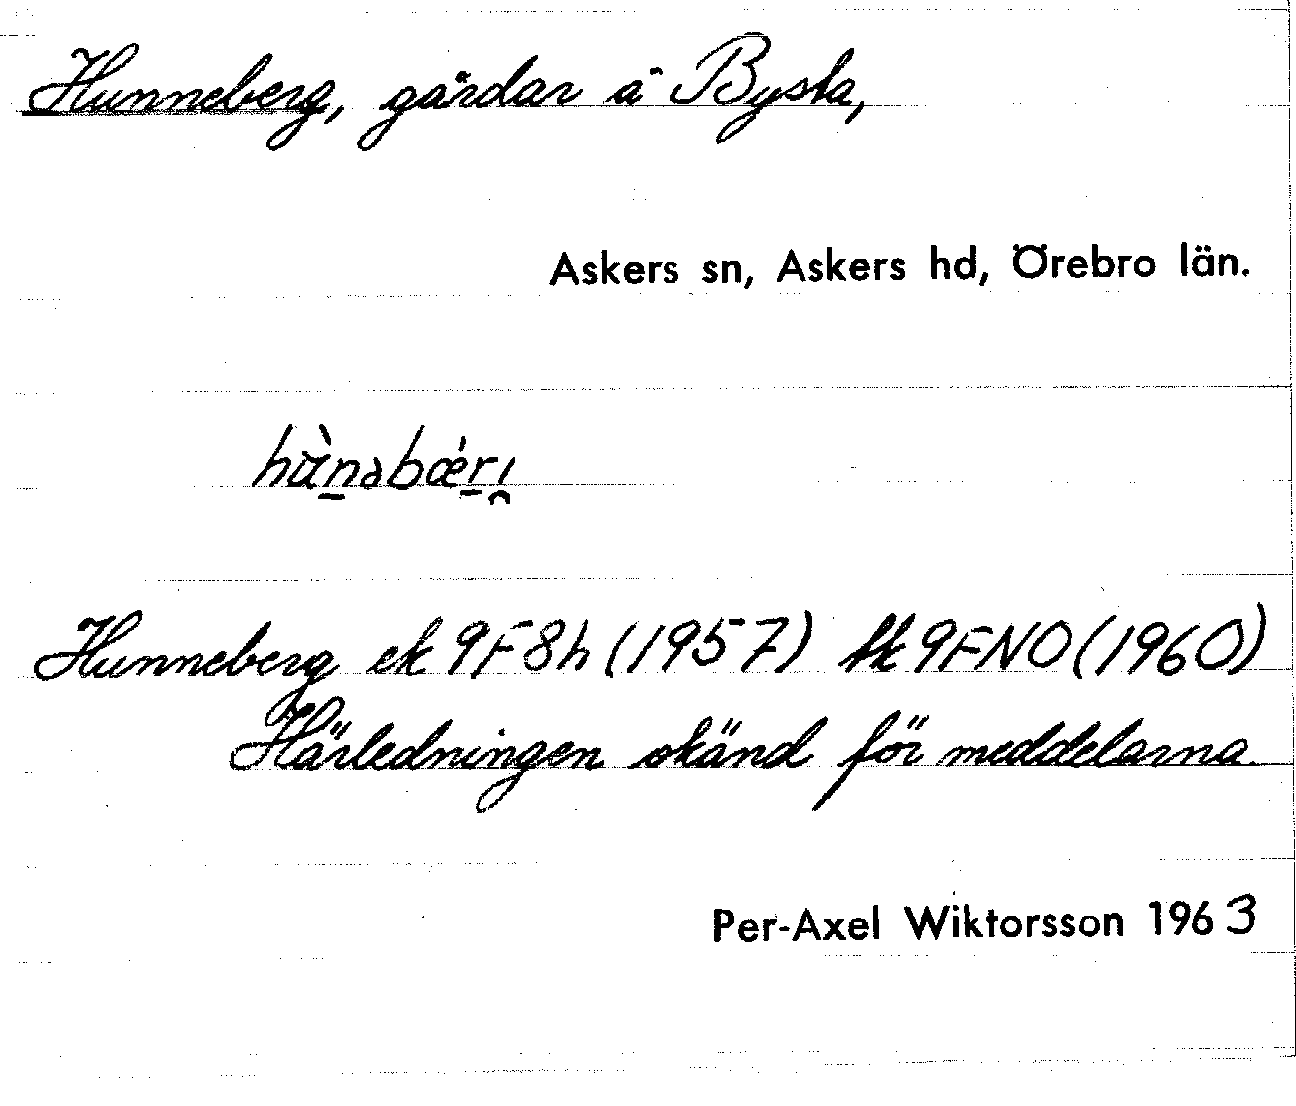 Hunneberg, gårdar å Bysta,
Askers sn, Askers hd, Örebro län.
Hunneberg ek 9F8h (1957) tk 9FNO (1960)
Härledningen okänd för meddelarna
Per-Axel Wiktorsson 1963